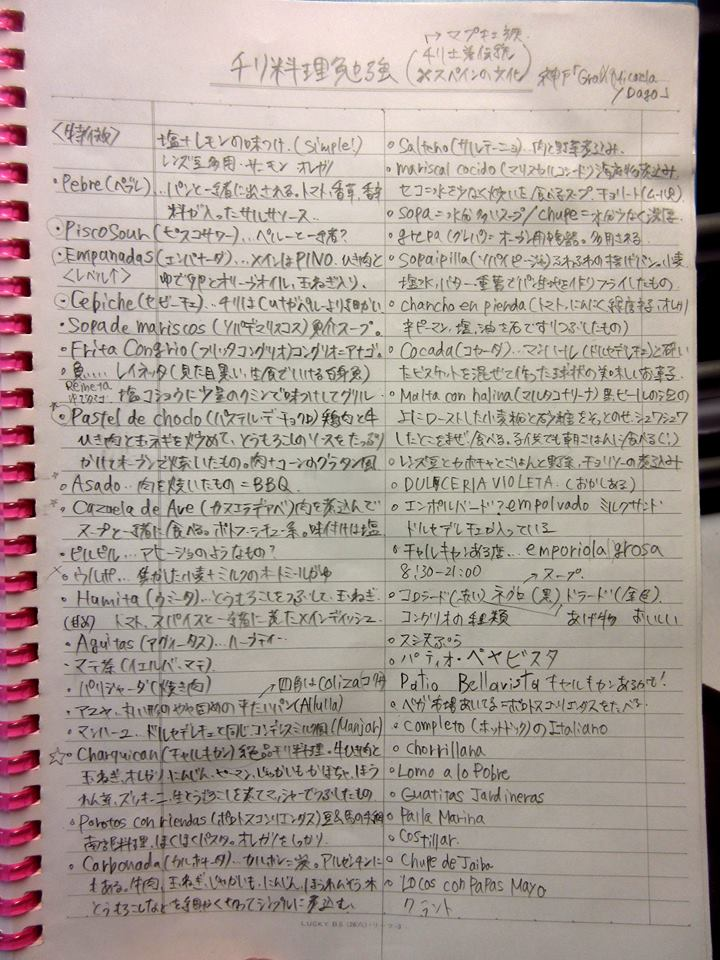 →マプチェ族
チリ料理勉強 (チリ土着伝統
×スペインの文化) 神戸「Gran Micaela
y Dago」
<特徴>
塩+レモンの味つけ。(Simple!)
レンズ豆多用・サーモン オレガノ
・Pebre(ペブレ)…パンと一緒に出される。トマト、香草、香辛
料が入ったサルサソース。
・Pisco Sour(ピスコサワー)…ペルーと一緒?
・Empanadas(エンパナーダ)…メインはPINO。ひき肉と
<レベル↑> ゆで卵とオリーブオイル、玉ねぎ入り。
・Cebiche(セビーチェ)…チリは
・Sopa de mariscos(ソパデマリスコス)魚介スープ。
・Frita Congrio(フリッタコングリオ)コングリオ=アナゴ。
・魚…レイネッタ(見た目黒い、生食でいける白身魚)
塩コショウに少量のクミンで味つけしてグリル。
・Pastel de choclo(パステル・デ・チョクロ)鶏肉と牛
ひき肉と玉ネギを炒めて、とうもろこしのソースをたっぷり
かけてオーブンで焼いたもの。肉+コーンのグラタン風
・Asado…肉を焼いたもの=BBQ。
・Cazuela de Ave(カスエラデアベ)肉を煮込んで
スープと一緒に食べる。ポトフ・シチュー系。味付けは塩
・ピルピル…アヒージョのようなもの?
・ウルポ…焦がした小麦+ミルクのオートミールがゆ
・Humita(ウミータ)…とうもろこしをつぶして、玉ねぎ、
(甘め) トマト、スパイスと一緒に煮たメインディッシュ
・Aguitas(アグィータス)…ハーブティー
・マテ茶(イェルバ・マテ)
・パリジャーダ(焼き肉)
丸い形のやや固めの平たいパン(Allulla)
・マンハーユ…ドルセデレチェと同じコンデンスミルク風(Manjar)
☆・Charquican(チャルキカン)絶品チリ料理。牛ひき肉と
玉ねぎ、オレガノ、にんじん、ピーマン、じゃがいも、かぼちゃ、ほう
れん草、ズッキーニ、生とうもろこしを煮てマッシャーでつぶしたもの
・Porotos con riendas
南部料理。ほくほくパスタ。オレガノをしっかり。
・Carbonada(カルボナーダ)…カルボン=炭。アルゼンチンに
もある。牛肉、玉ねぎ、じゃがいも、にんじん、ほうれんそう、米
とうもろこしなどを細かく切ってシンプルに煮込む。
LUCKY B5
○Salteno(サルテーニョ)…肉と野菜煮込み。
○mariscal cocido
セコ=水を少なく炊いた食べるスープ。
○sopa=水分多いスープ/chupe=水分少なく濃厚。
○greɾpa(グレパ)=オーブン用陶器。多用される
○Sopaipilla(ソパイピージャ)ふわふわの揚げパン。小麦
塩水、バター、重曹でパン生地を作りフライしたもの
○chancho en pienda(トマト、にんにく
辛ピーマン、塩、油を石ですりつぶしたもの)
○Cocada(コカーダ)…マンハール(ドルセデレチェ)と砕い
たビスケットを混ぜて作った球状の美味しいお菓子
○Malta con halina(マルタコナリーナ)黒ビールの泡の
上にローストした小麦粉と砂糖をそっとのせ、シュワシュワ
したとこをまぜ食べる。子供でも朝ごはんに食べる(!)
○レンズ豆とカボチャとごはんと野菜、チョリソーの煮込み
○DULCERIA VIOLETA.(おかしある)
○エンポルバード?empolvado ミルクサンド
ドルセデレチェが入っている
○チャルキカンある店…emporio la grosa
8:30-21:00 →スープ。
○コロラード(赤い)ネグロ(黒)ドラード(金色)
コングリオの種類 あげもの おいしい
○ス天ぷら
○パティオ・ベヤビスタ
Patio Bellavista チャルキカンあるかも!
○ベガ市場あいてる=ポロトスコンリエンダスをたべる
○Completo(ホットドッグ)のItaliano
○chorrillana
○Lomo a lo Pobre
○Guatitas Jardineras
○Paila Marina
○Costillar.
○Chupe de Jaiba
○Locos con Papas Mayo
クラント